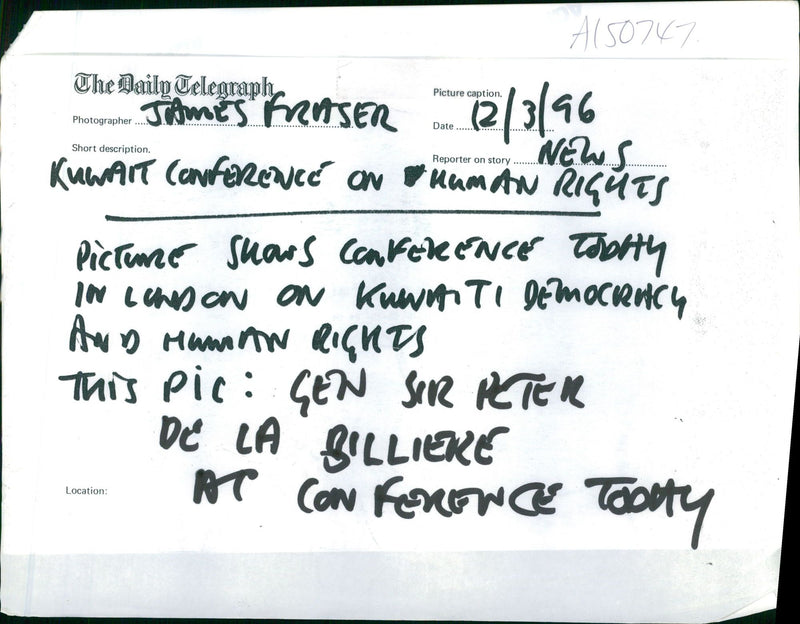 A150747.
The Daily Telegraph
Picture caption.
Photographer JAMES FRASER
Date 12/3/96
Short description.
Reporter on story NEWS
KUWAIT CONFERENCE ON HUMAN RIGHTS
PICTURE SHOWS CONFERENCE TODAY
IN LONDON ON KUWAITI DEMOCRACY
AND HUMAN RIGHTS
THIS PIC: GEN SIR PETER
DE LA BILLIERE
AT CONFERENCE TODAY
Location: